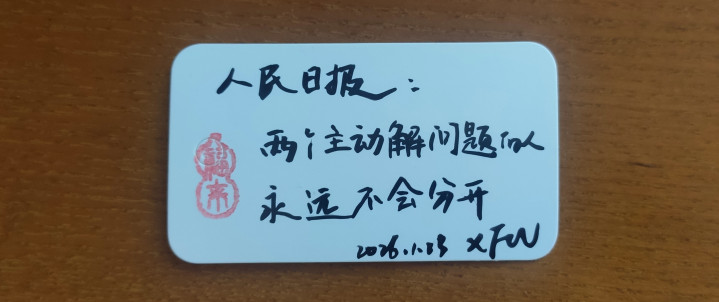 人民日报：
两个主动解问题的人
永远不会分开
2026.1.23 XFW